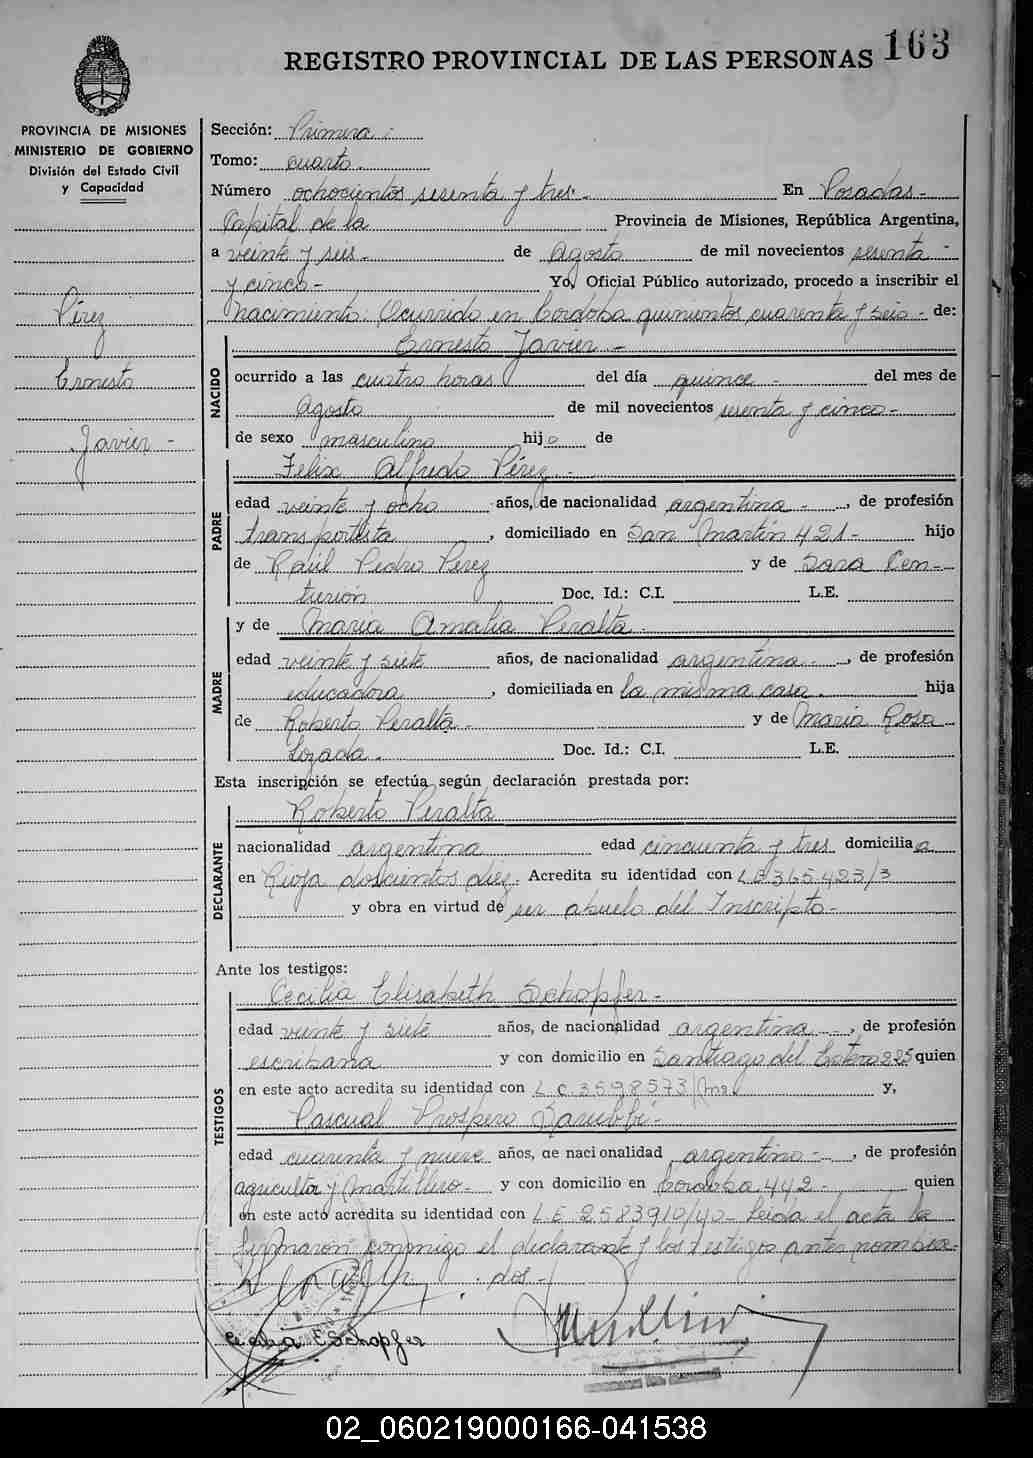 163
REGISTRO PROVINCIAL DE LAS PERSONAS
PROVINCIA DE MISIONES
MINISTERIO DE GOBIERNO
División del Estado Civil
y Capacidad
Pérez
Ernesto
Javier -
Sección: Primera.-
Tomo: cuarto.
Número ochocientos sesenta y tres.- En Posadas-
Capital de la Provincia de Misiones, República Argentina,
a veinte y seis.- de agosto de mil novecientos sesenta -
y cinco- Yo, Oficial Público autorizado, procedo a inscribir el
nacimiento: Ocurrido en Cordoba quinientos cuarenta y seis - de:
NACIDO
Ernesto Javier -
ocurrido a las cuatro horas del día quince - del mes de
agosto de mil novecientos sesenta y cinco-
de sexo masculino hijo de
PADRE
Felix Alfredo Pérez -
edad veinte y ocho años, de nacionalidad argentina -, de profesión
transportista, domiciliado en San Martín 421- hijo
de Raúl Pedro Perez y de Sara Cen-
turión Doc. Id.: C.I. L.E.
MADRE
y de Maria Amalia Peralta.
edad veinte y siete años, de nacionalidad argentina -, de profesión
educadora, domiciliada en la misma casa. hija
de Roberto Peralta.- y de Maria Rosa
Lozada.- Doc. Id.: C.I. L.E.
Esta inscripción se efectúa según declaración prestada por:
DECLARANTE
Roberto Peralta
nacionalidad argentina edad cincuenta y tres domicilia a
en Rioja doscientos diez. Acredita su identidad con L.E 365.423/3
y obra en virtud de ser abuelo del Inscripto-
Ante los testigos:
TESTIGOS
Cecilia Elisabeth Schopfer-
edad veinte y siete años, de nacionalidad argentina -, de profesión
escribana y con domicilio en Santiago del Estero 225 quien
en este acto acredita su identidad con L.C.3598573 y,
Pascual Prospero
edad cuarenta y nueve años, de nacionalidad argentino-, de profesión
agriculta y Martillero- y con domicilio en Cordoba 442- quien
en este acto acredita su identidad con L.E 2583910/40- Leida el acta la
firmaron conmigo el declarante y los testigos antes nombra-
dos.-
E Schopfer
02_060219000166-041538